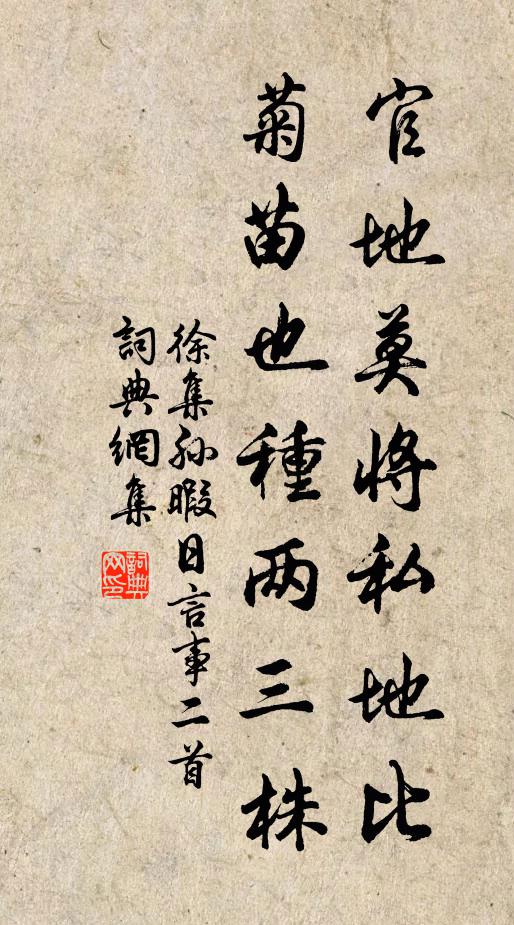 官地莫將私地比
菊苗也種两三株
徐集孙暇日言事二首
詞典網集
詞典网印